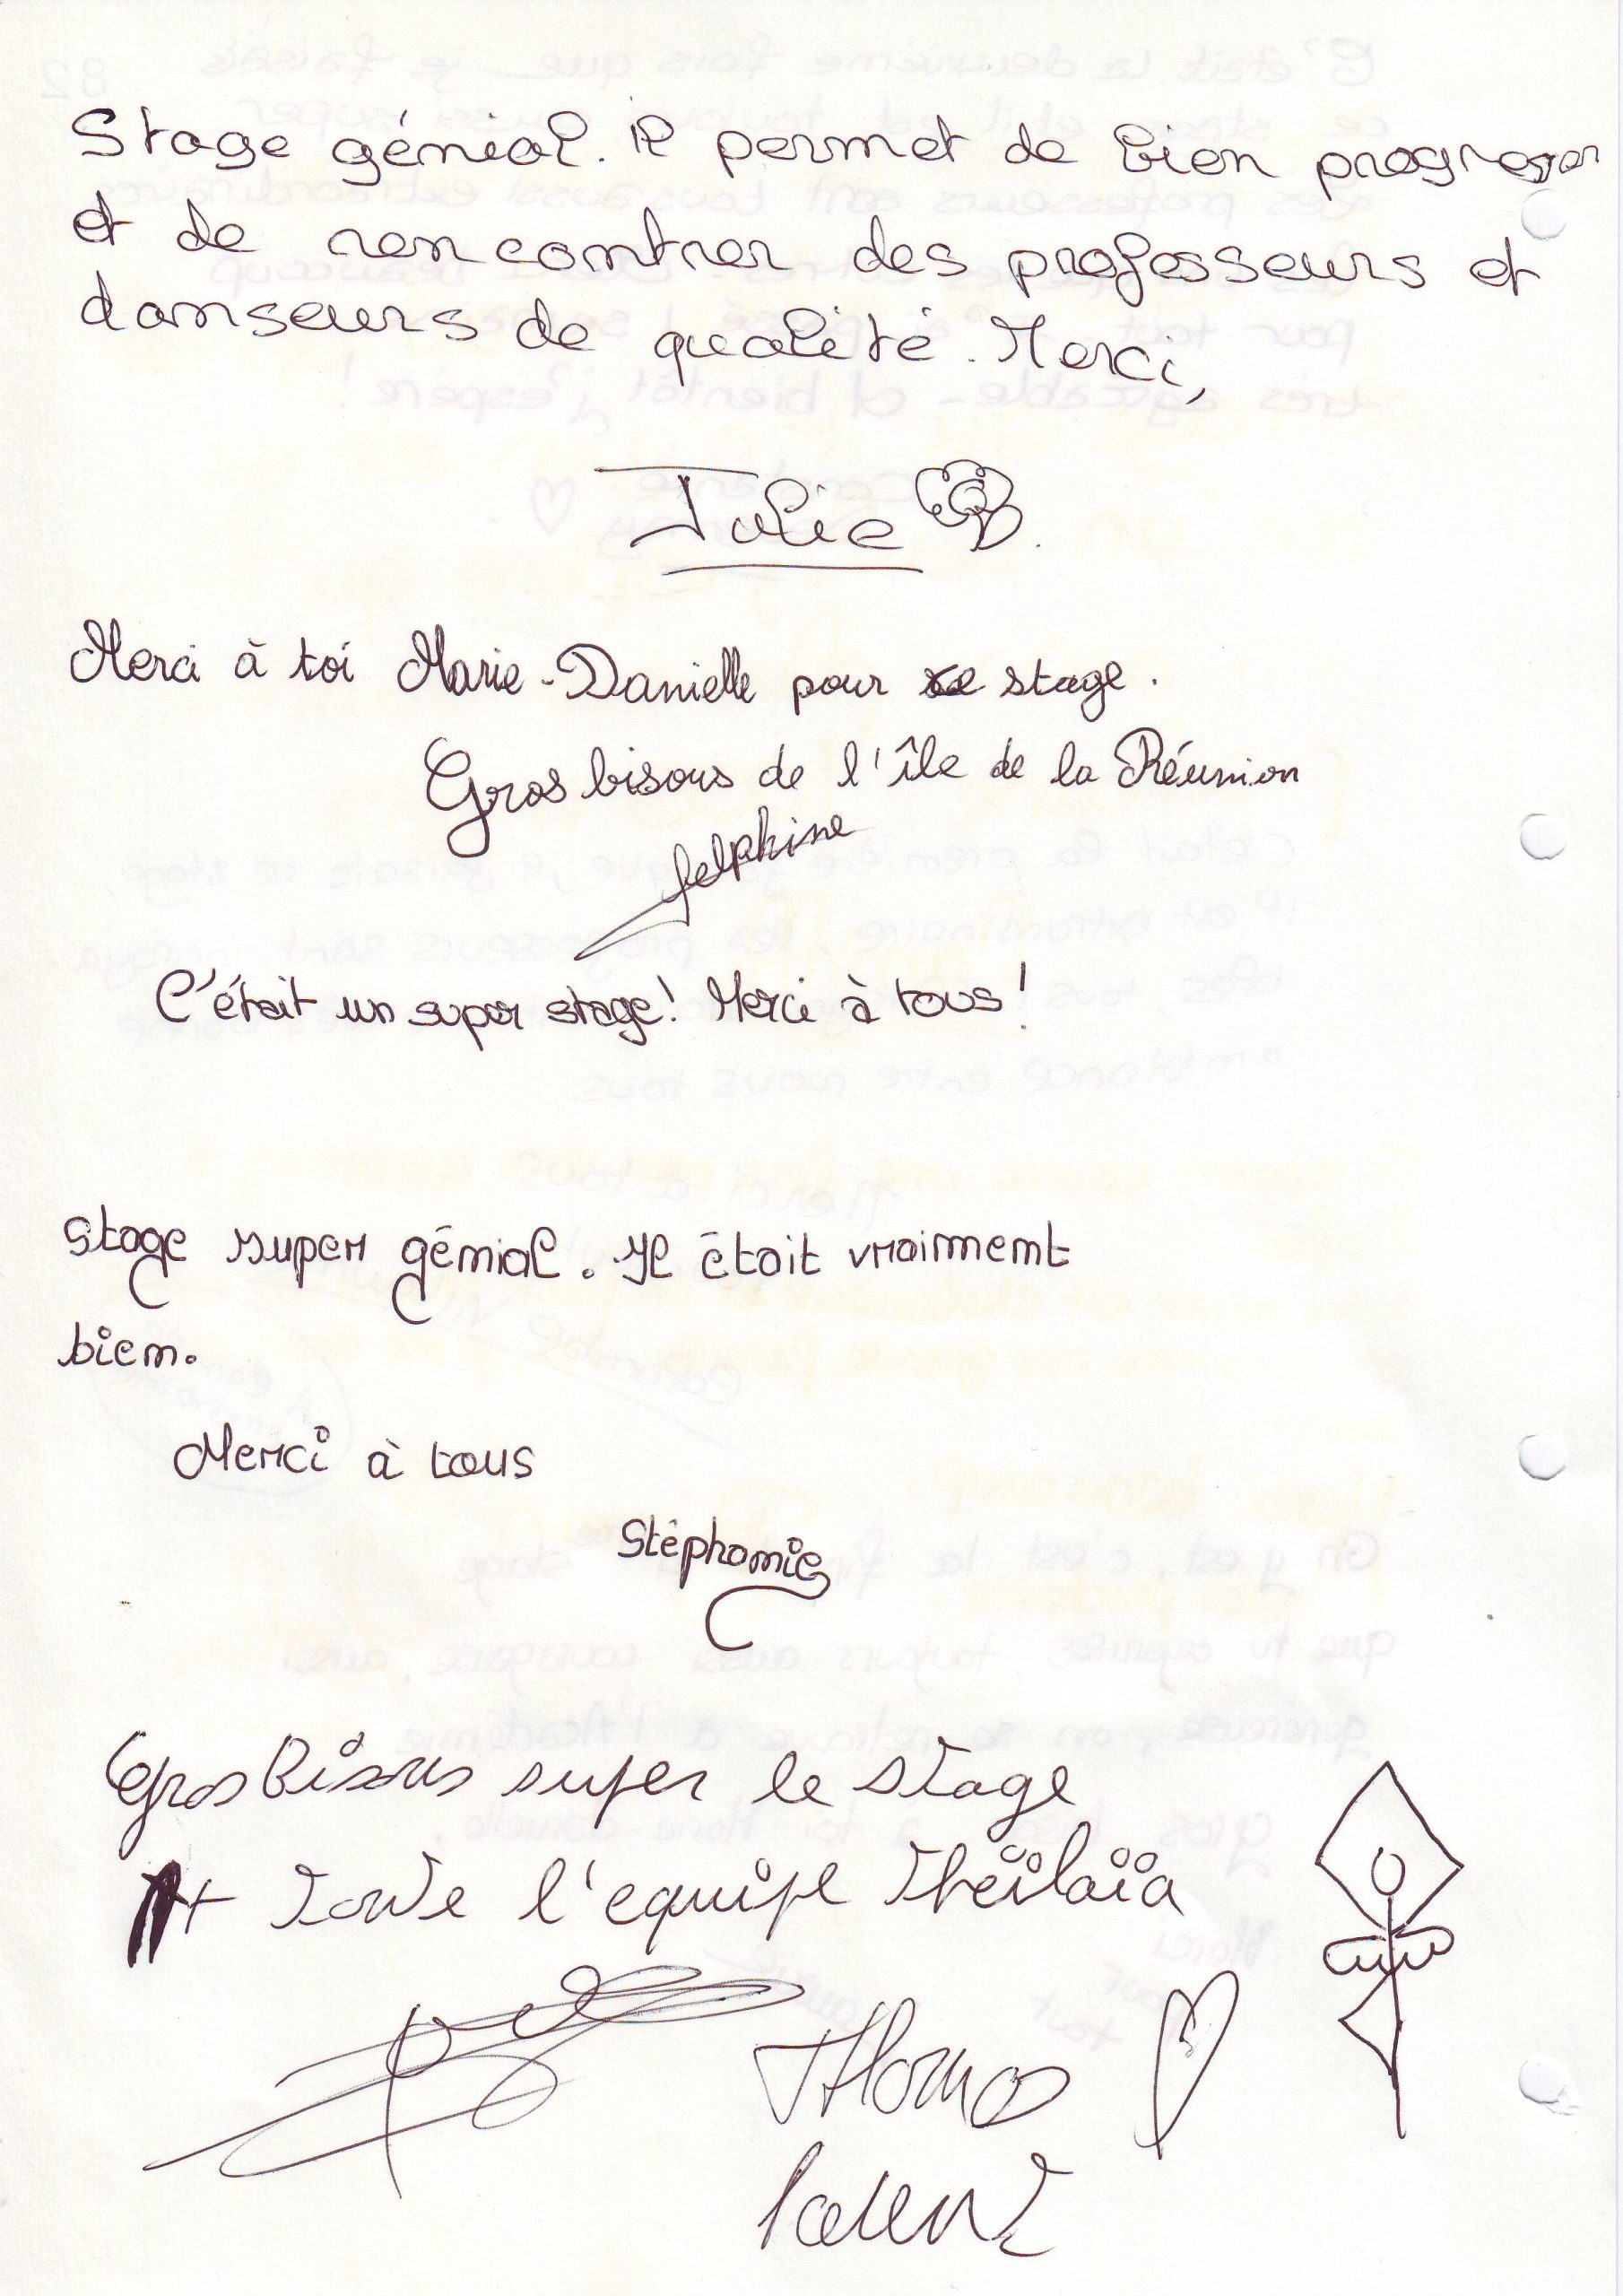 Stage génial. il permet de bien progresser
et de rencontrer des professeurs et
danseurs de qualité. Merci,
Julie
Merci à toi Marie-Danielle pour ce stage.
Gros bisous de l'île de la Réunion
Delphine
C'était un super stage! Merci à tous!
Stage super génial. Il était vraiment
bien.
Merci à tous
Stéphanie
Gros Bisous super le stage
+ Toute l'equipe Theïlaïa
Thomas